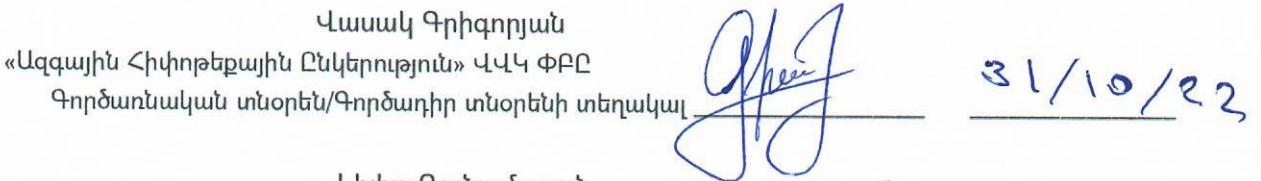 Վասակ Գրիգորյան
«Ազգային Հիփոթեքային Ընկերություն» ՎՎԿ ՓԲԸ
Գործառնական տնօրեն/Գործադիր տնօրենի տեղակալ
31/10/22